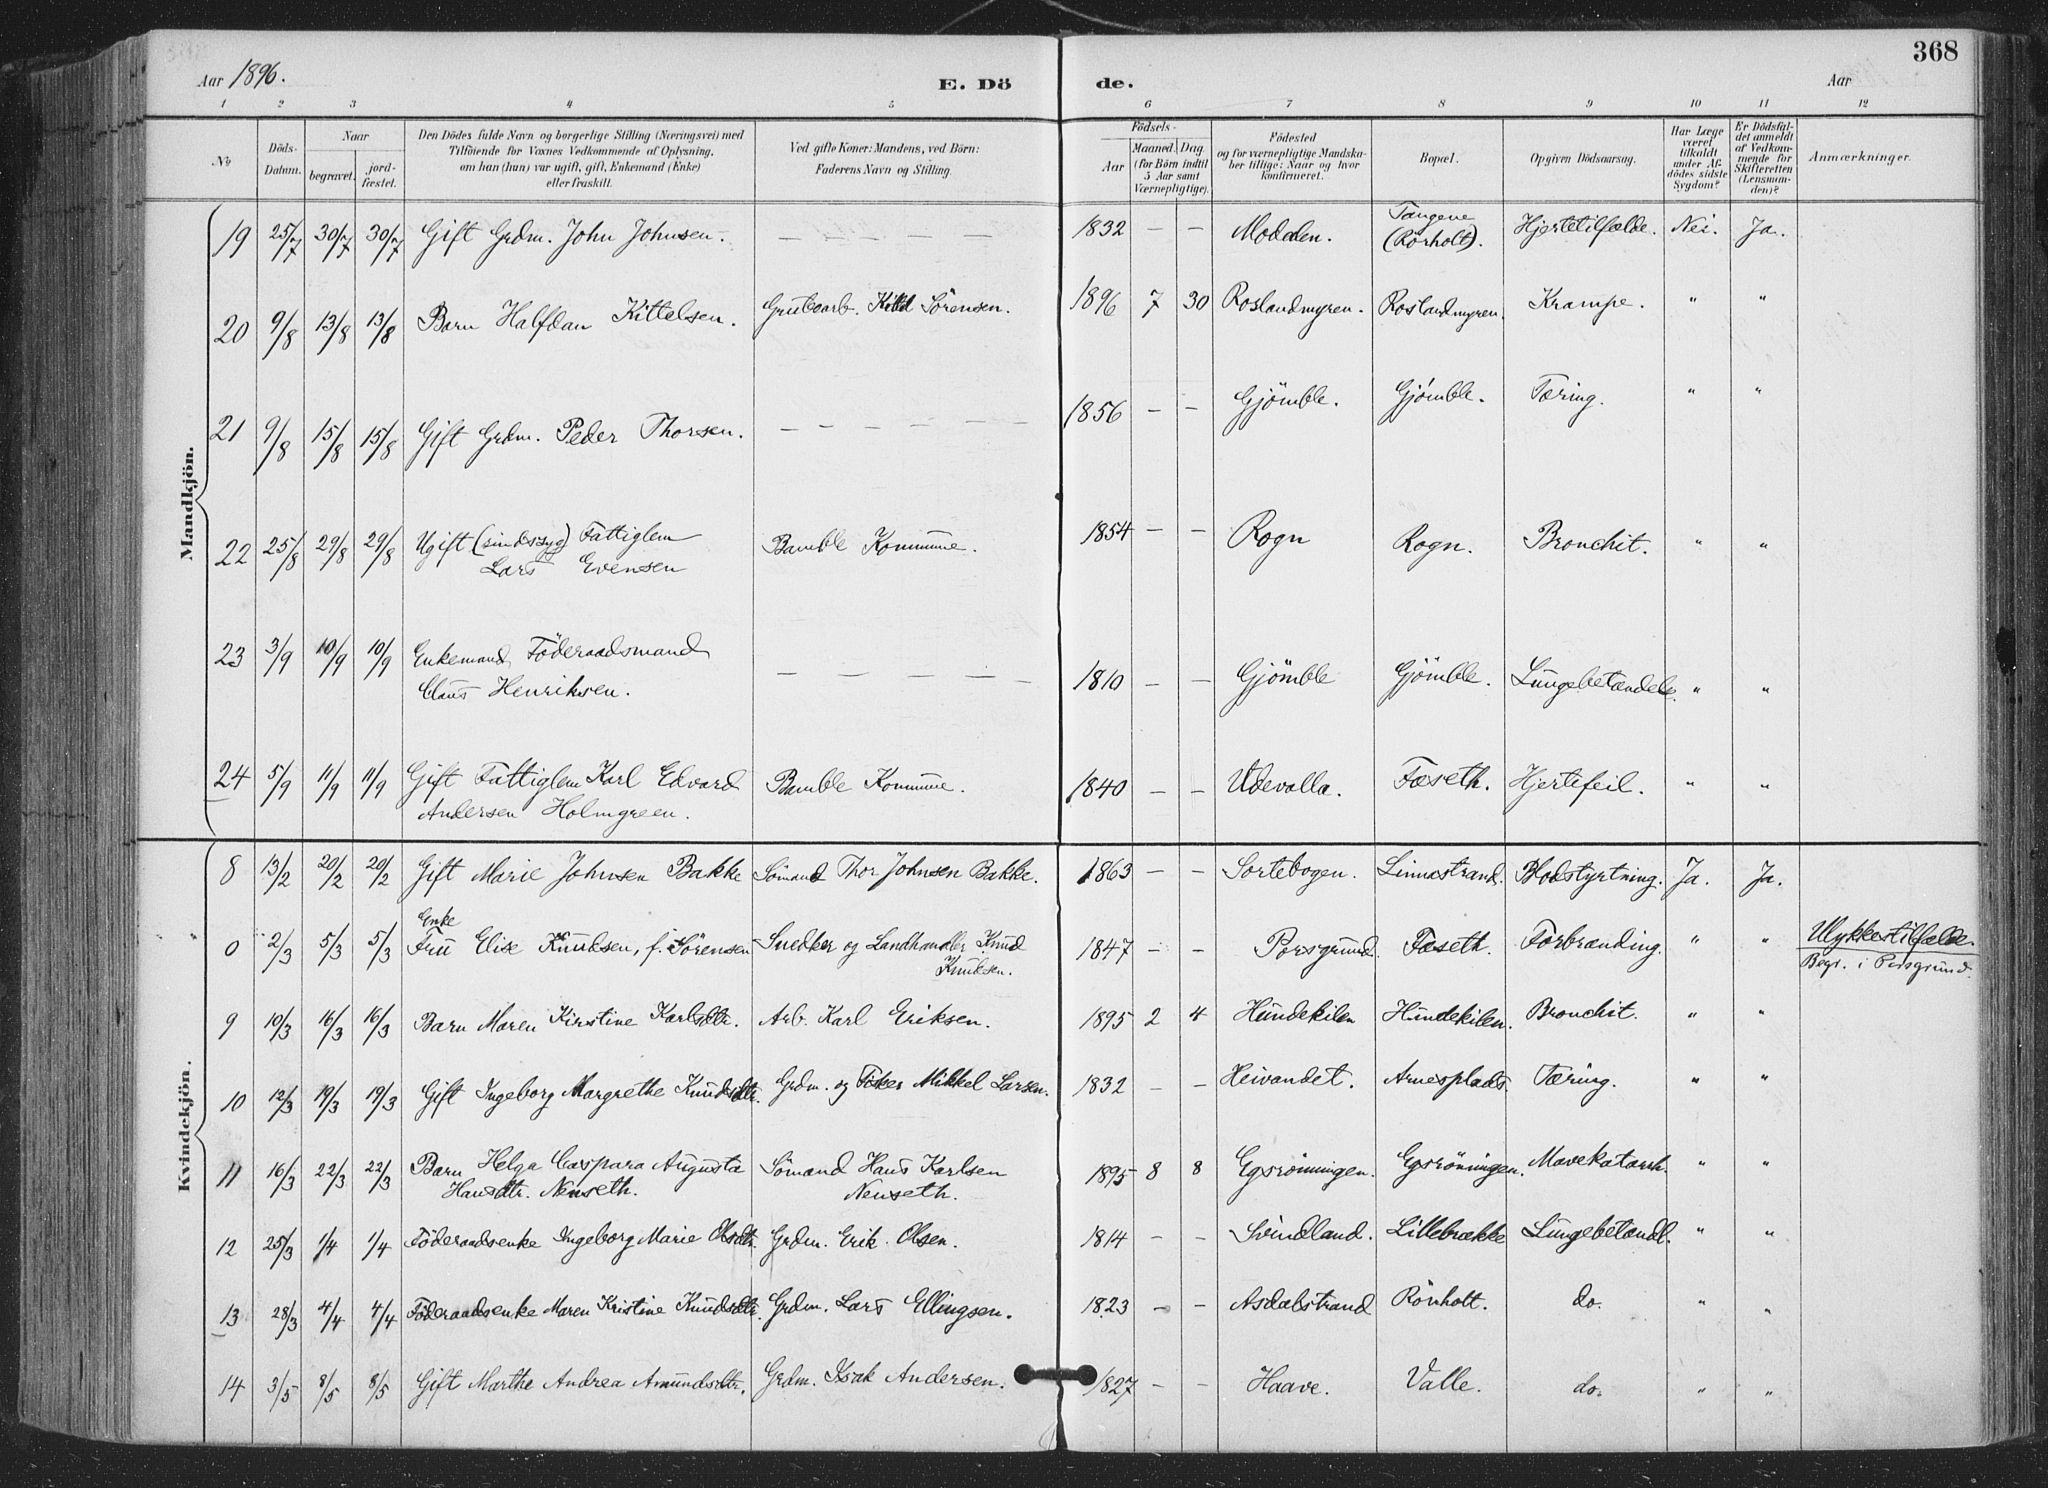 368
Aar 1896. E. Dö de. Aar
1 2 3 4 5 6 7 8 9 10 11 12
No
Döds-Datum.
Naar
begravet.
jord-fæstet.
Den Dödes fulde Navn og borgerlige Stilling (Næringsvei) med
Tilföiende for Voxnes Vedkommende af Oplysning,
om han (hun) var ugift, gift, Enkemand (Enke)
eller fraskilt.
Ved gifte Koner: Mandens, ved Börn:
Faderens Navn og Stilling.
Födsels-
Aar
Maaned. Dag
(for Börn indtil
5 Aar samt
Værnepligtige).
Födested
og for værnepligtige Mandska-
ber tillige: Naar og hvor
konfirmeret.
Bopæl.
Opgiven Dödsaarsag.
Har Læge
været
tilkaldt
under Af-
dödes sidste
Sygdom?
Er Dödsfal-
det anmeldt
af Vedkom-
mende for
Skifteretten
(Lensman-
den)?
Anmærkninger.
Mandkjön.
19 25/7 30/7 30/7 Gift Grdm. John Johnsen. — — — — — 1832 — — Modalen. Tangene (Rörholt). Hjertetilfælde. Nei. Ja.
20 9/8 13/8 13/8 Barn Halfdan Kittelsen. Grubearb. Kittel Sörensen. 1896 7 30 Roslandmyren. Roslandmyren. Krampe. " "
21 9/8 15/8 15/8 Gift Grdm. Peder Thorsen. — — — — — — 1856 — — Gjömble. Gjömble. Tæring. " "
22 25/8 29/8 29/8 Ugift (sindssyg) Fattiglem Bamble Kommune. 1854 — — Rogn Rogn. Bronchit. " "
Lars Evensen
23 3/9 10/9 10/9 Enkemand Föderaadsmand — — — — — — 1810 — — Gjömble Gjömble. Lungebetændels. " "
Claus Henriksen.
24 5/9 11/9 11/9 Gift Fattiglem Karl Edvard Bamble Kommune. 1840 — — Udevalla. Foseth. Hjertefeil. " "
Andersen Holmgreen.
Kvindekjön.
8 13/2 20/2 20/2 Gift Marie Johnsen Bakke Sömand Thor Johnsen Bakke. 1863 — — Sortebogen. Linnastrand. Blodstyrtning. Ja. Ja.
0 2/3 5/3 5/3 Enke Fru Elise Knudsen, f. Sörensen Snedker og Landhandler Knud Knudsen. 1847 — — Porsgrund. Foseth. Forbrænding. " " Ulykkestilfælde.
Begr. i Porsgrund.
9 10/3 16/3 16/3 Barn Maren Kirstine Karlsdtr. Arb. Karl Eriksen. 1895 2 4 Hundekilen Hundekilen. Bronchit. " "
10 12/3 19/3 19/3 Gift Ingeborg Margrethe Knudsdtr. Grdm. og Fisker Mikkel Larsen. 1832 — — Heivandet. Arnesplads. Tæring. " "
11 16/3 22/3 22/3 Barn Helga Caspara Augusta Sömand Hans Karlsen 1895 8 8 Egsrönningen. Egsrönningen. Mavekatarrh. " "
Hansdtr. Nenseth. Nenseth.
12 25/3 1/4 1/4 Föderaadsenke Ingeborg Marie Olsdtr. Grdm. Erik Olsen. 1814 — — Svindland. Lillebrække Lungebetændl. " "
13 28/3 4/4 4/4 Föderaadsenke Maren Kristine Knudsdtr. Grdm. Lars Ellingsen. 1823 — — Asdalstrand Rörholt. do. " "
14 3/5 8/5 8/5 Gift Marthe Andrea Amundsdtr. Grdm. Isak Andersen. 1827 — — Haave. Valle. do. " "